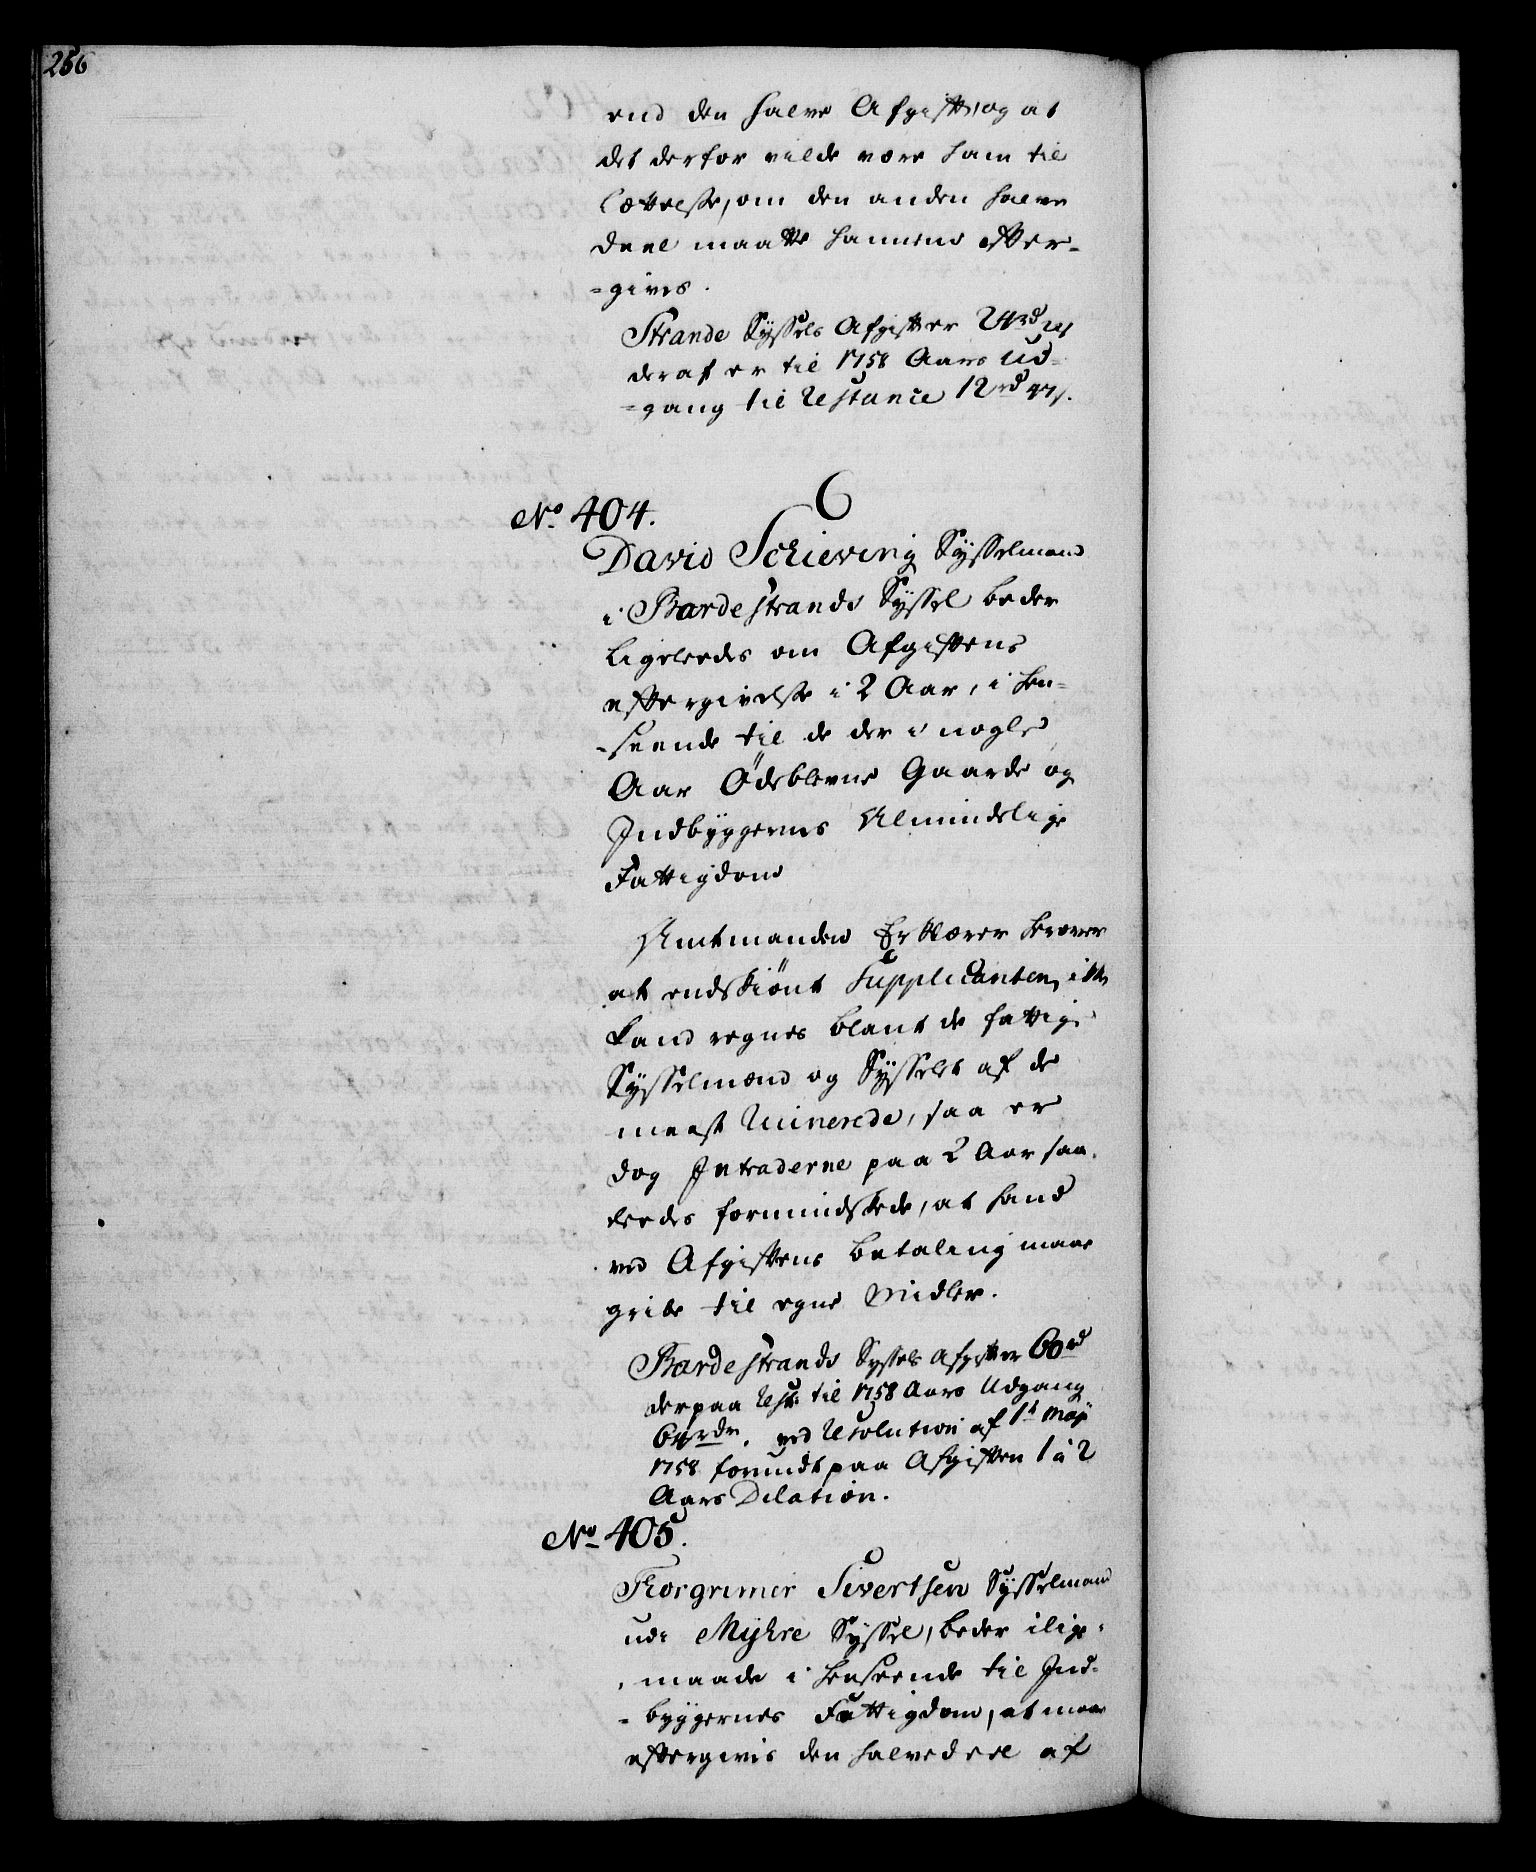 256
end den halve Afgift, og at
det derfor vilde være ham til
Lættelse, om den anden halve
Deel maatte hannem efter-
=gives.
Strande Syssels Afgift er 24rd
deraf er til 1758 Aars Ud-
=gang til Restance 12rd 47s.
6
No. 404.
David Schieving Sysselmand
i Bardestrands Syssel beder
ligeleedes om Afgiftens
eftergivelse i 2 Aar, i hen-
-seende til de der i nogle
Aar Ödeblevne Gaarde og
Indbyggernes Almindelige
Fattigdom
Amtmanden Erklærer herover
at endskiönt Supplicanten ikke
kand regnes blant de fattige
Sysselmænd og Sysselet af de
meest Ruinerede, saa er
dog Intraderne paa 2 Aar saa-
leedes formindskede, at hand
ved Afgiftens Betaling maae
gribe til egne Midler.
Bardestrands Syssels Afgift er 60rd
derpaa Rest: til 1758 Aars Udgang
64rdr. ved Resolution af 1t Maji
1758 forundt paa Afgiften 1 à 2
Aars Dilation.
No. 405.
Thorgrimer Sivertsen Sysselmand
udi Myhre Syssel, beder ilige-
maade i henseende til Ind-
=byggernes Fattigdom, at maae
eftergivis den halvedeel af